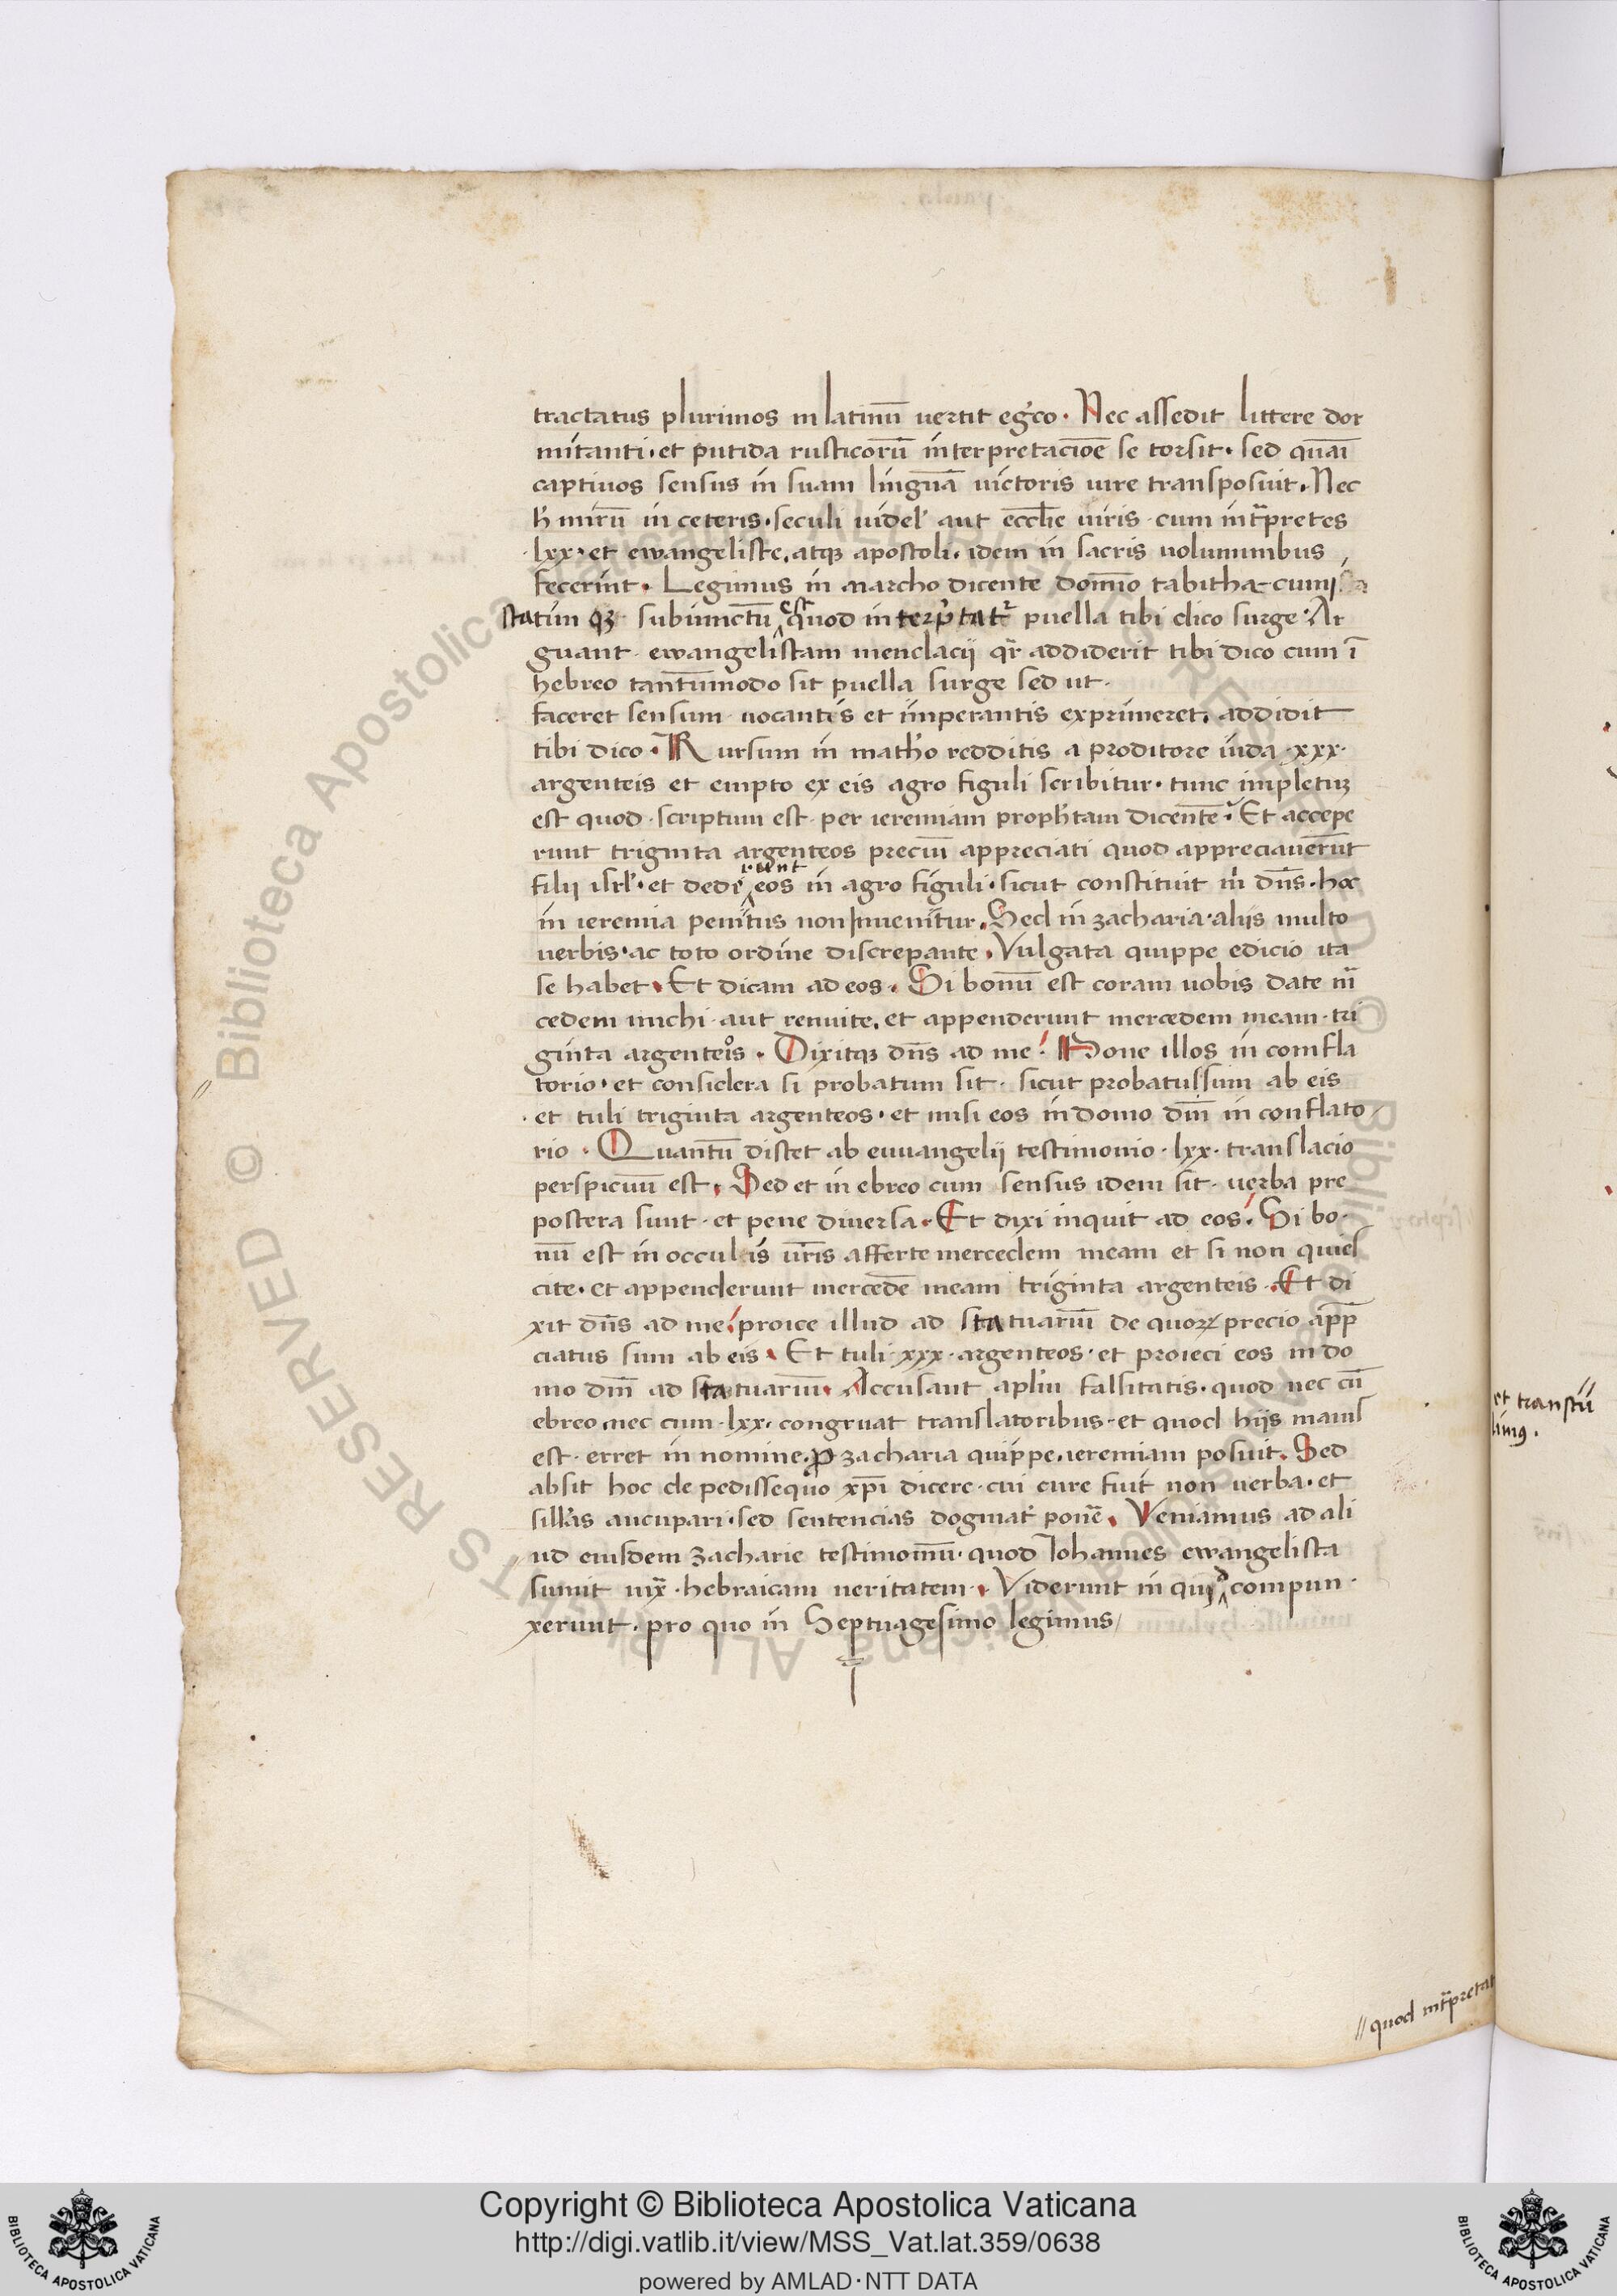 tractatus plurimos in latinū uertit eg̃co · Nec assedit littere dor
mitanti · et putida rusticorū interpretacioē se torsit · sed quāi
captiuos sensus in suam linguā uictoris iure transposuit . Nec
h̓ mirū in ceteris · seculi uidel̓ aut ecclīe uiris · cum int̃pretes
· lxx · et ewangeliste . atqꝫ apostoli . idem in sacris uoluminibus
fecerint · Legimus in marcho dicente domīo tabitha cumi
statim qꝫ · subiunctū est quod interp̃tat᷑ puella tibi dico surge · Ar
guant · ewangelistam mendacij qr̃ addiderit tibi dico cum ī
hebreo tantūmodo sit puella surge sed ut ·
faceret sensum · uocantis et imperantis exprimeret . addidit
tibi dico · Rursum in math̓o redditis a proditore iuda · xxx ·
argenteis et empto ex eis agro figuli scribitur · tunc impletuꝫ
est quod · scriptum est · per ieremiam proph̓tam dicentē · Et accepe
runt triginta argenteos preciū appreciati quod appreciauer̄ut
filij isrl̓ · et dederunt eos in agro figuli · sicut constituit m̓ dn̄s · hoc
in ieremia penitus non inuenītur . Sed in zacharia · aliis multo
uerbis · ac toto ordine discrepante . Vulgata quippe edicio ita
se habet · Et dicam ad eos . Si bonū est coram uobis date m̃
cedem michi · aut renuite . et appenderunt mercedem meam · tri
ginta argenteos . Dixitqꝫ dn̄s ad me · Pone illos in comfla
torio · et considera si probatum sit · sicut probatus sum ab eis
· et tuli triginta argenteos · et misi eos in domo dm̄ in conflato
rio · Quantū distet ab euuangelij testimonio · lxx · translacio
perspicuū est . Sed et in ebreo cum sensus idem sit · uerba pre
postera sunt · et pene diuersa . Et dixi inquit ad eos . Si bo ·
nū est in occulis ur̄is afferte mercedem meam et si non quies
cite · et appenderunt mercedē meam triginta argenteis . Et di
xit dn̄s ad me . proice illud ad statuariū de quoꝝ precio app̄
ciatus sum ab eis . Et tuli · xxx · argenteos · et proieci eos in do
mo dm̄ ad statuariū . Accusant apl̓m falsitatis · quod nec cū
ebreo nec cum · lxx · congruat translatoribus · et quod hijs maius
est · erret in nomine . ꝓ zacharia quippe . ieremiam posuit . Sed
absit hoc de pedissequo xp̄i dicere · cui cure fuit non uerba · et
sill̓as aucupari · sed sentencias dogmat̓ ponē . Veniamus ad ali
ud eiusdem zacharie testimoniū · quod Iohannes ewangelista
sumit iux̃ · hebraicam ueritatem · Viderunt in quē compun ·
xerunt . pro quo in Septuagesimo legimus
et transtu
limꝰ .
// quod int̃pretat
Copyright © Biblioteca Apostolica Vaticana
http://digi.vatlib.it/view/MSS_Vat.lat.359/0638
powered by AMLAD·NTT DATA